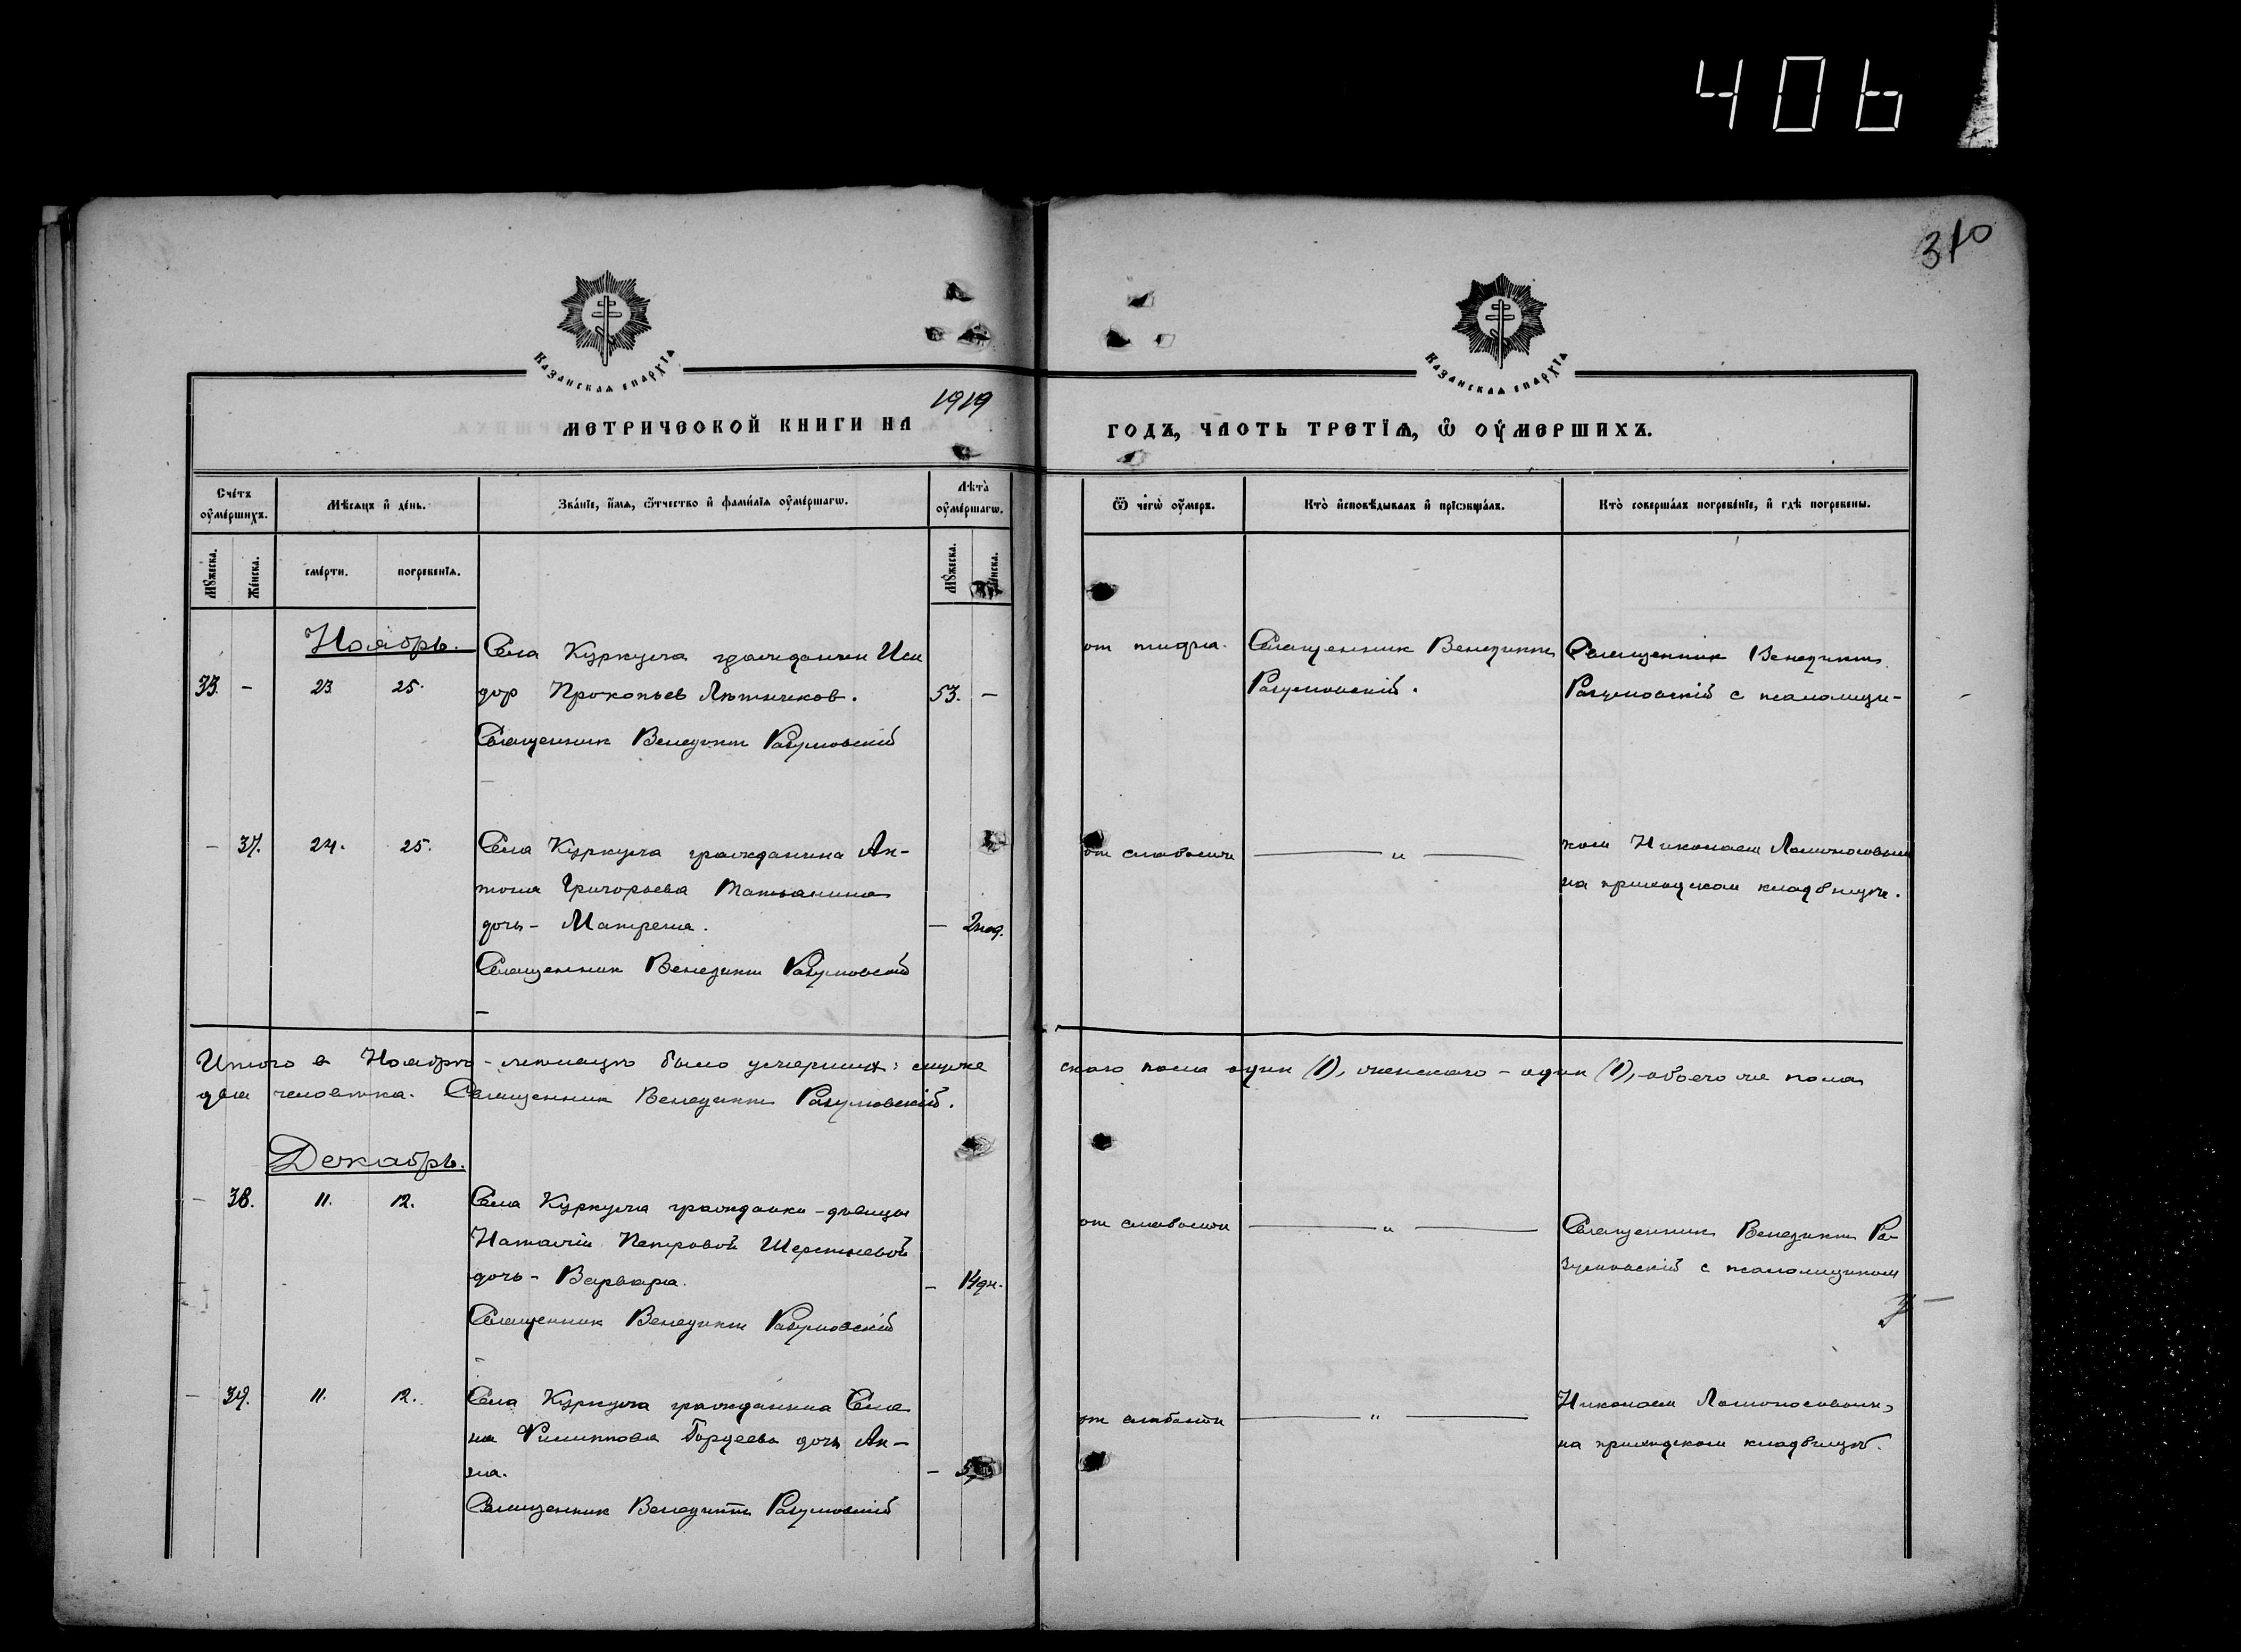 406
310
КАЗАНСКАѦ ЕПАРХІѦ
КАЗАНСКАѦ ЕПАРХІѦ
МЕТРИЧЕСКОЙ КНИГИ НА 1919 ГОДЪ, ЧАСТЬ ТРЕТЇѦ, Ѽ ОУМЕРШИХЪ.
Счётъ оумершихъ.
Мѣсяцъ и день.
Званїе, имя, ѻтчество и фамилїя оумершагѡ.
Лѣта оумершагѡ.
Ѿ чегѡ оумеръ.
Кто исповѣдывалъ и прїѡбщалъ.
Кто совершалъ погребенїе, и гдѣ погребены.
Мужеска.
Женска.
смерти.
погребенїя.
Мужеска.
Женска.
Ноябрь.
33. - 23 25.
Села Куркуля гражданин Иси
дор Прокопьев Лѣтничков.
53. -
Священник Венедикт Разумовскій
от тифа.
Священник Венедикт
Разумовскій.
Священник Венедикт
Разумовскій с псаломщи-
- 37. 24. 25.
Села Куркуля гражданина Ан-
тона Григорьева Татьянина
дочь - Матрена.
- 2 нед.
Священник Венедикт Разумовскій
от слабости
— „ —
ком Николаем Ломоносовым
на приходском кладбищѣ.
Итого в Ноябрѣ-мѣсяцѣ было умерших: муже
ского пола один (1), женского - один (1), обоего же пола
два человѣка. Священник Венедикт Разумовскій.
Декабрь.
- 38. 11. 12.
Села Куркуля гражданки-дѣвицы
Наталіи Петровой Шерстневой
дочь - Варвара.
- 14 дн.
Священник Венедикт Разумовскій
от слабости
— „ —
Священник Венедикт Ра-
зумовскій с псаломщиком
- 39. 11. 12.
Села Куркуля гражданина Семе
на Филиппова Гордеева дочь Ан-
на.
Священник Венедикт Разумовскій
от слабости
— „ —
Николаем Ломоносовым,
на приходском кладбищѣ.